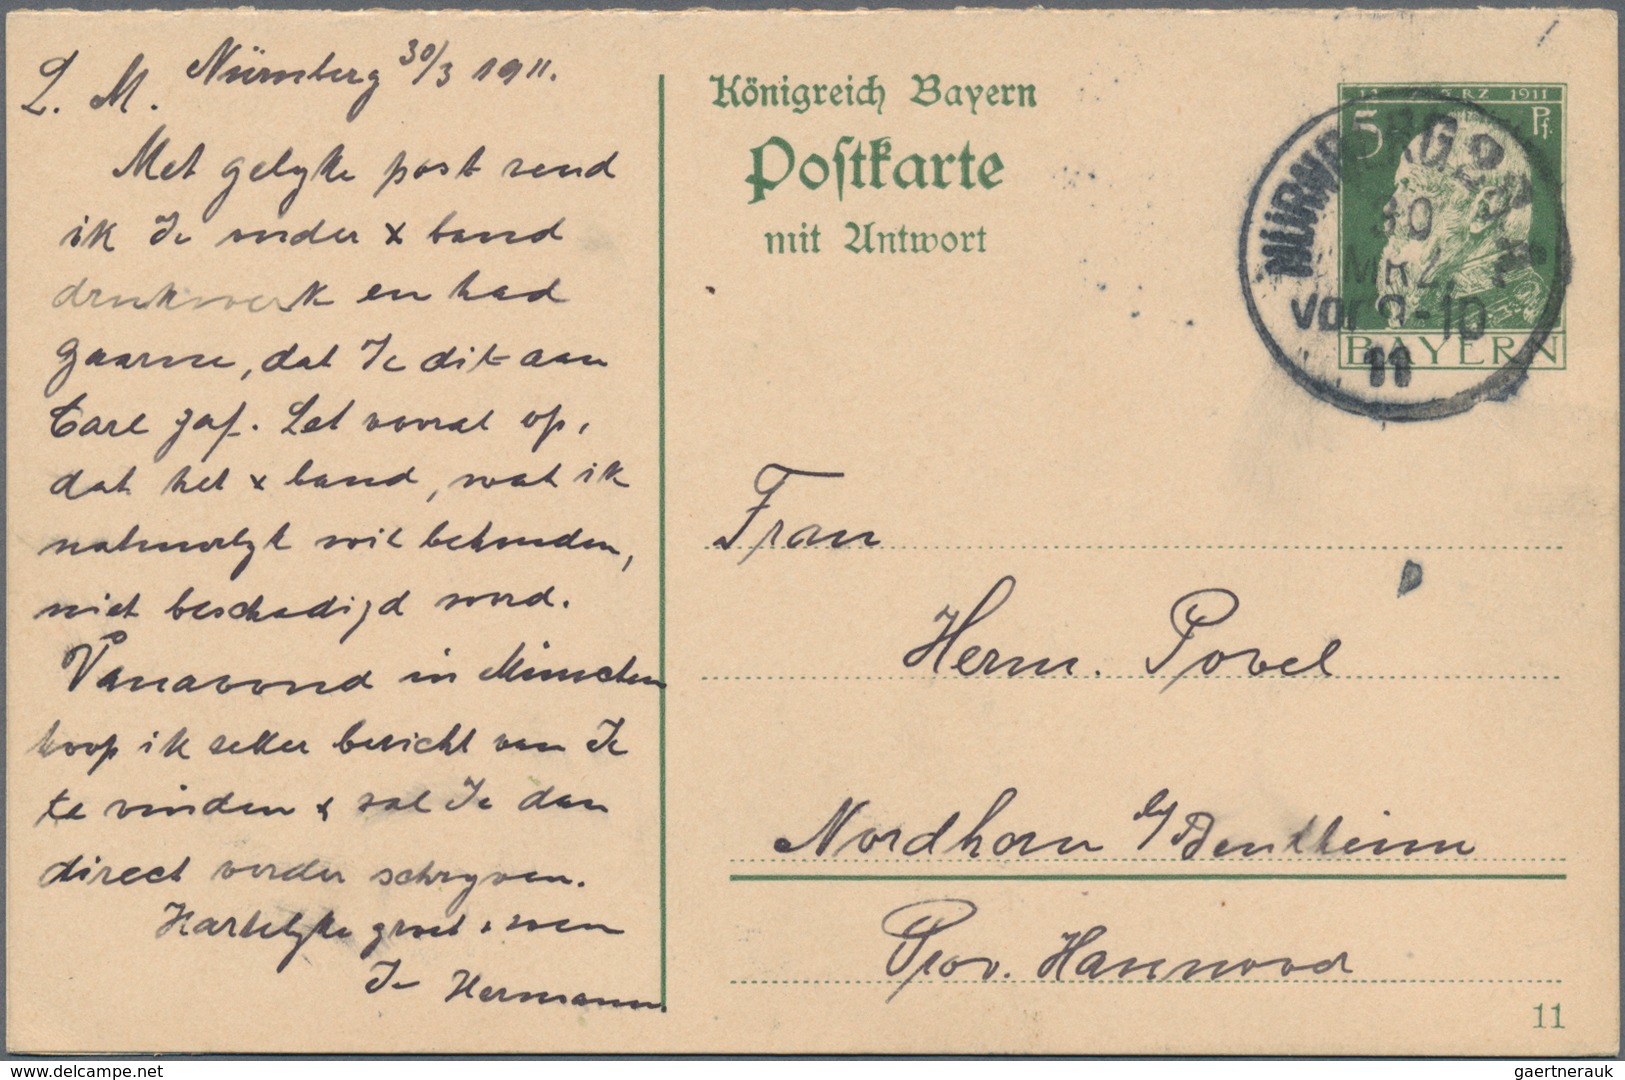 L. M. Nürnberg 30/3 1911.
Met gelyke post zend
ik Je onder x band
drukwerk en had
gaarne, dat Je dit aan
Carl gaf. Let vooral op,
dat het x band, wat ik
natuurlyk wil behouden,
niet beschadigd word.
Vanavond in München
hoop ik zeker bericht van Je
te vinden & zal Je dan
direct verder schryven.
Hartelyke groet & zoen
Je Hermann.
Königreich Bayern
Postkarte
mit Antwort
12. MÄRZ 1911
5 Pf.
BAYERN
NÜRNBERG 2
30
MRZ
vor 9-10
11
Frau
Herm. Povel
Nordhorn by Bentheim
Prov. Hannover
11
delcampe.net
gaertnerauk